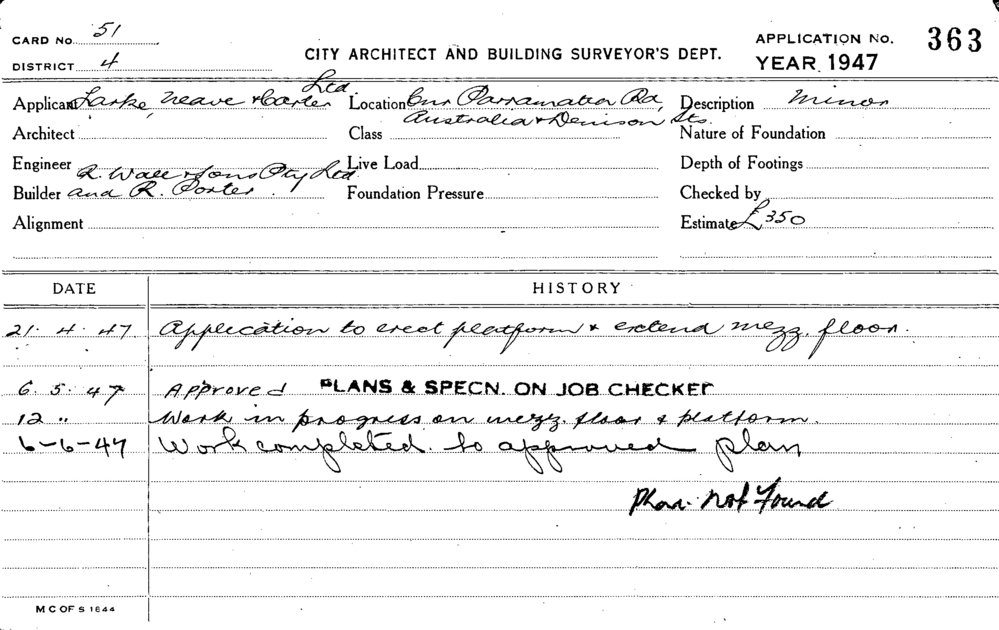 CARD No. 51
DISTRICT 4
CITY ARCHITECT AND BUILDING SURVEYOR'S DEPT.
APPLICATION No. 363
YEAR 1947
Applicant Larke, Neave & Carter Ltd.
Location Cnr Parramatta Rd,
Australia & Denison Sts.
Description Minor
Architect
Class
Nature of Foundation
Engineer
Live Load
Depth of Footings
Builder R. Wall & Sons Pty Ltd
and R. Porter.
Foundation Pressure
Checked by
Alignment
Estimate £350
DATE
HISTORY
21. 4. 47 Application to erect platform & extend mezz. floor.
6. 5. 47 Approved PLANS & SPECN. ON JOB CHECKED
12 " Work in progress on mezz. floor & platform.
6-6-47 Work completed to approved plan
Plan Not Found
M C OF S 1844